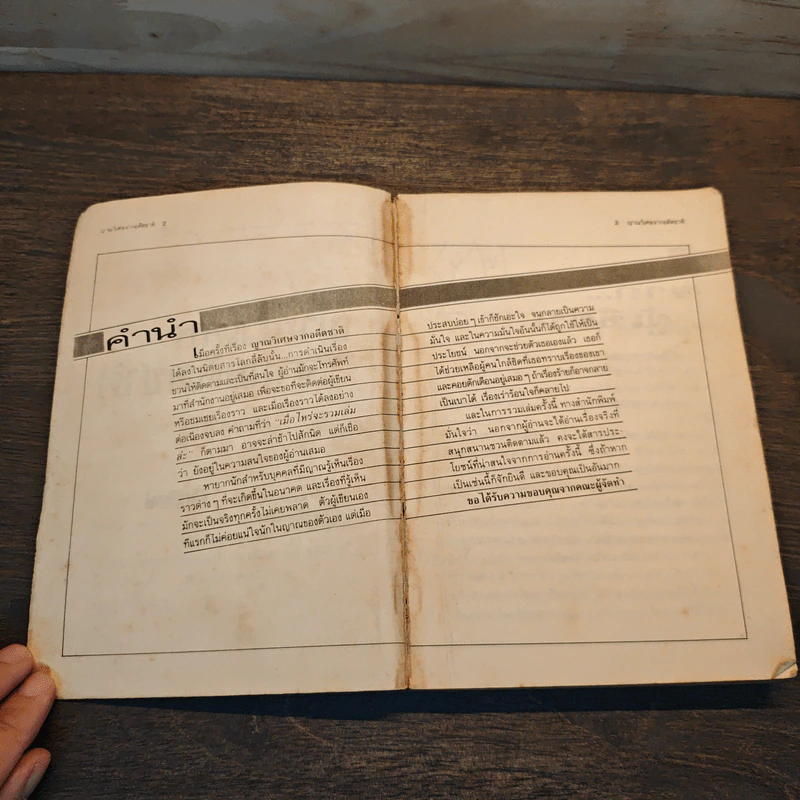 ญาณวิเศษจากอดีตชาติ 2
คำนำ
เมื่อครั้งที่เรื่อง ญาณวิเศษจากอดีตชาติ
ได้ลงในนิตยสารโลกลี้ลับนั้น...การดำเนินเรื่อง
ชวนให้ติดตามและเป็นที่สนใจ ผู้อ่านมักจะโทรศัพท์
มาที่สำนักงานอยู่เสมอ เพื่อจะขอที่จะติดต่อผู้เขียน
หรือชมเชยเรื่องราว และเมื่อเรื่องราวได้ลงอย่าง
ต่อเนื่องจบลง คำถามที่ว่า "เมื่อไหร่จะรวมเล่ม
ล่ะ" ก็ตามมา อาจจะล่าช้าไปสักนิด แต่ก็เชื่อ
ว่า ยังอยู่ในความสนใจของผู้อ่านเสมอ
หายากนักสำหรับบุคคลที่มีญาณรู้เห็นเรื่อง
ราวต่างๆ ที่จะเกิดขึ้นในอนาคต และเรื่องที่รู้เห็น
มักจะเป็นจริงทุกครั้งไม่เคยพลาด ตัวผู้เขียนเอง
ทีแรกก็ไม่ค่อยแน่ใจนักในญาณของตัวเอง แต่เมื่อ
3 ญาณวิเศษจากอดีตชาติ
ประสบบ่อยๆ เข้าก็ชักเอะใจ จนกลายเป็นความ
มั่นใจ และในความมั่นใจอันนั้นก็ได้ถูกใช้ให้เป็น
ประโยชน์ นอกจากจะช่วยตัวเธอเองแล้ว เธอก็
ได้ช่วยเหลือผู้คนใกล้ชิดที่เธอทราบเรื่องของเขา
และคอยตักเตือนอยู่เสมอๆ ถ้าเรื่องร้ายก็อาจกลาย
เป็นเบาได้ เรื่องเร่าร้อนใจก็คลายไป
และในการรวมเล่มครั้งนี้ ทางสำนักพิมพ์
มั่นใจว่า นอกจากผู้อ่านจะได้อ่านเรื่องจริงที่
สนุกสนานชวนติดตามแล้ว คงจะได้สารประ-
โยชน์ที่น่าสนใจจากการอ่านครั้งนี้ ซึ่งถ้าหาก
เป็นเช่นนี้ก็จักยินดี และขอบคุณเป็นอันมาก
ขอได้รับความขอบคุณจากคณะผู้จัดทำ